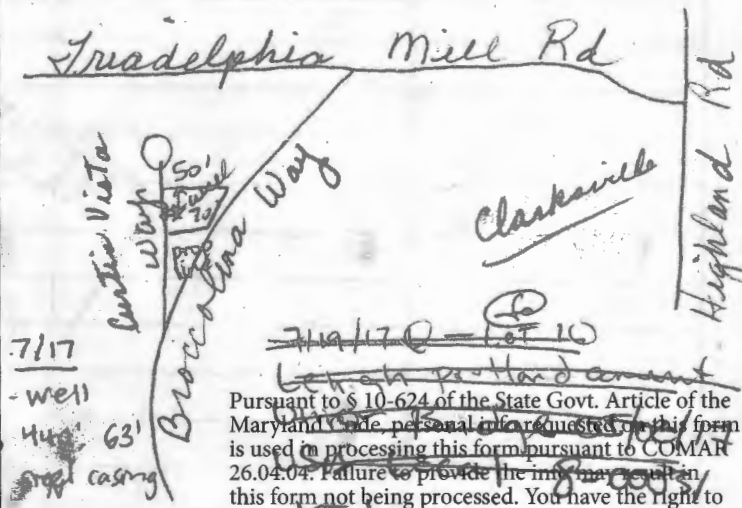 Triadelphia Mill Rd
Highland Rd
Curtin Vista Way
50'
well
70
Broccolina Way
Clarksville
7/19/17 - Lot 10
Lehigh Portland cement
7/17
- well
63'
casing
Pursuant to § 10-624 of the State Govt. Article of the
Maryland Code, personal info requested on this form
is used in processing this form pursuant to COMAR
26.04.04. Failure to provide the info may result in
this form not being processed. You have the right to